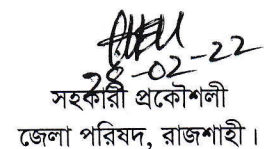 28-02-22
সহকারী প্রকৌশলী
জেলা পরিষদ, রাজশাহী।